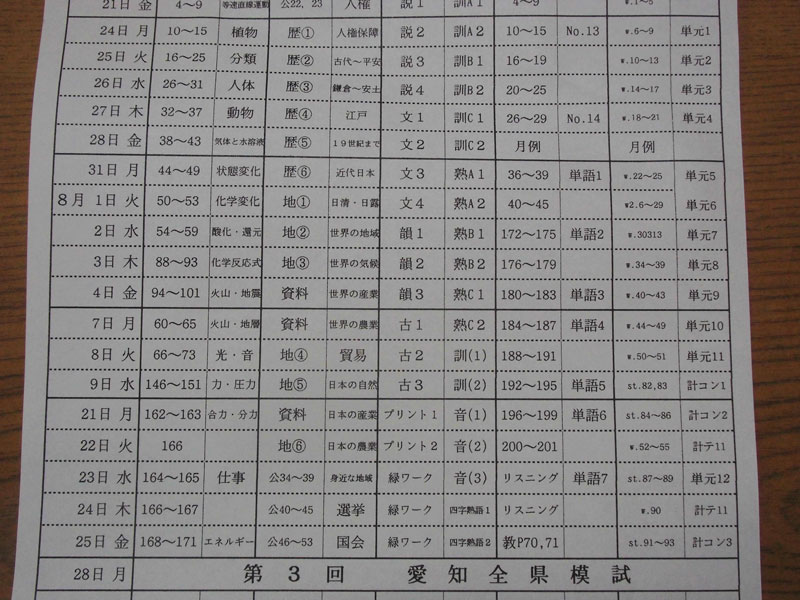 21日 金 4～9 等速直線運動 公22, 23 人権 説1 訓A1 4～9 w.1～5
24日 月 10～15 植物 歴① 人権保障 説2 訓A2 10～15 No.13 w.6～9 単元1
25日 火 16～25 分類 歴② 古代～平安 説3 訓B1 16～19 w.10～13 単元2
26日 水 26～31 人体 歴③ 鎌倉～安土 説4 訓B2 20～25 w.14～17 単元3
27日 木 32～37 動物 歴④ 江戸 文1 訓C1 26～29 No.14 w.18～21 単元4
28日 金 38～43 気体と水溶液 歴⑤ 19世紀まで 文2 訓C2 月例 月例
31日 月 44～49 状態変化 歴⑥ 近代日本 文3 熟A1 36～39 単語1 w.22～25 単元5
8月 1日 火 50～53 化学変化 地① 日清・日露 文4 熟A2 40～45 w2.6～29 単元6
2日 水 54～59 酸化・還元 地② 世界の地域 韻1 熟B1 172～175 単語2 w.30313 単元7
3日 木 88～93 化学反応式 地③ 世界の気候 韻2 熟B2 176～179 w.34～39 単元8
4日 金 94～101 火山・地震 資料 世界の産業 韻3 熟C1 180～183 単語3 w.40～43 単元9
7日 月 60～65 火山・地層 資料 世界の農業 古1 熟C2 184～187 単語4 w.44～49 単元10
8日 火 66～73 光・音 地④ 貿易 古2 訓(1) 188～191 w.50～51 単元11
9日 水 146～151 力・圧力 地⑤ 日本の自然 古3 訓(2) 192～195 単語5 st.82,83 計コン1
21日 月 162～163 合力・分力 資料 日本の産業 プリント1 音(1) 196～199 単語6 st.84～86 計コン2
22日 火 166 地⑥ 日本の農業 プリント2 音(2) 200～201 w.52～55 計テ11
23日 水 164～165 仕事 公34～39 身近な地域 緑ワーク 音(3) リスニング 単語7 st.87～89 単元12
24日 木 166～167 公40～45 選挙 緑ワーク 四字熟語1 リスニング w.90 計テ11
25日 金 168～171 エネルギー 公46～53 国会 緑ワーク 四字熟語2 教P70,71 st.91～93 計コン3
28日 月 第3回 愛知全県模試